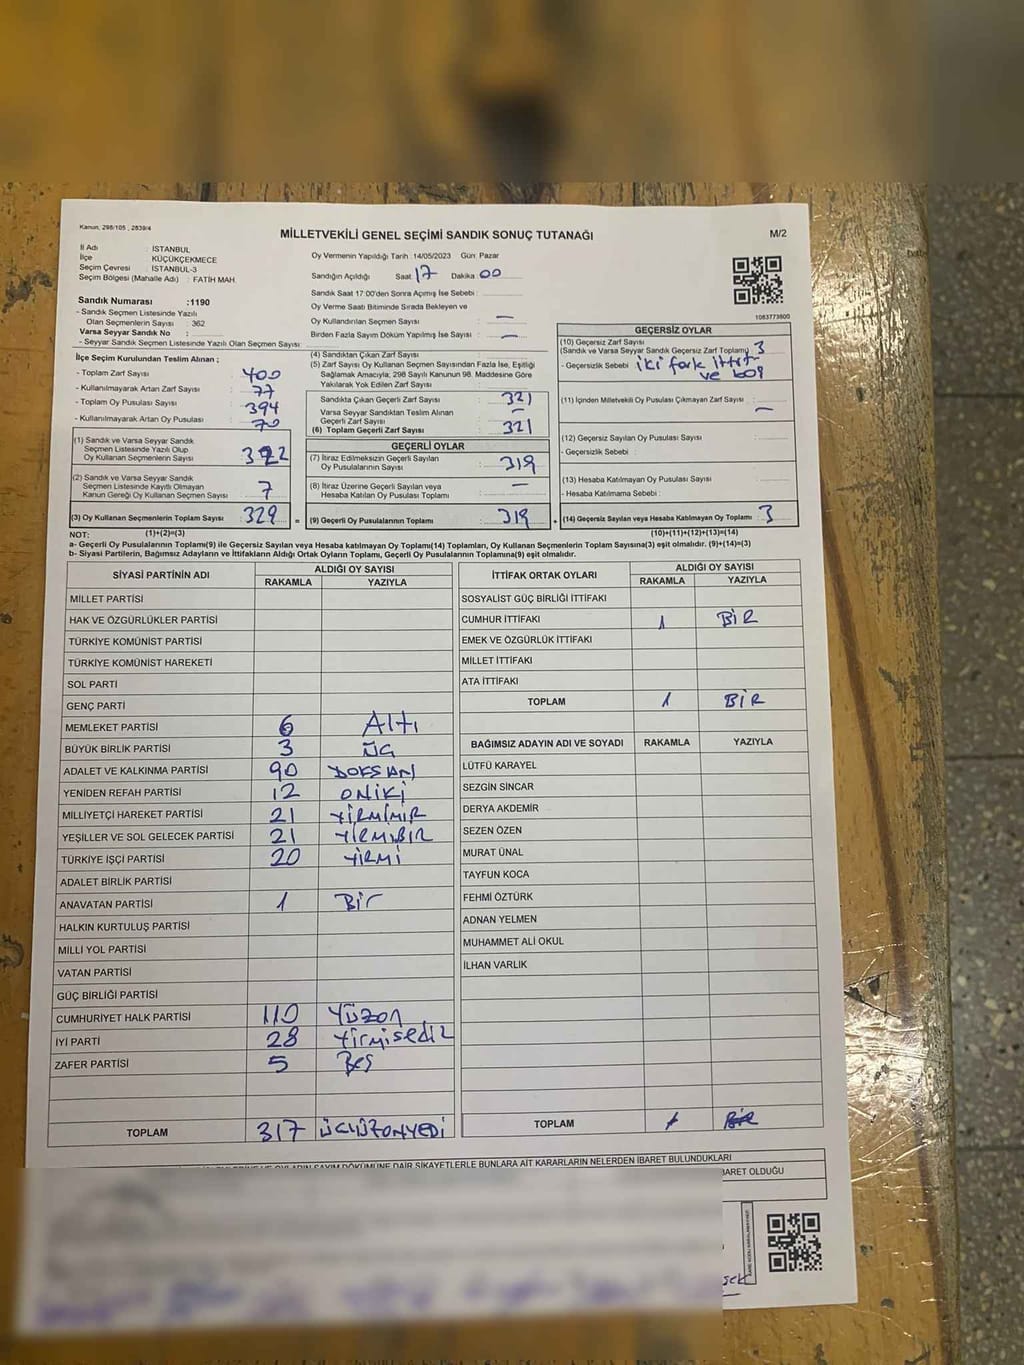 Kanun, 298/105 , 2839/4
MİLLETVEKİLİ GENEL SEÇİMİ SANDIK SONUÇ TUTANAĞI
M/2
İl Adı : İSTANBUL
İlçe : KÜÇÜKÇEKMECE
Seçim Çevresi : İSTANBUL-3
Seçim Bölgesi (Mahalle Adı) : FATİH MAH.
Sandık Numarası :1190
- Sandık Seçmen Listesinde Yazılı
Olan Seçmenlerin Sayısı : 362
Varsa Seyyar Sandık No :
- Seyyar Sandık Seçmen Listesinde Yazılı Olan Seçmen Sayısı:
Oy Vermenin Yapıldığı Tarih :14/05/2023 Gün: Pazar
Sandığın Açıldığı Saat 17 Dakika 00
Sandık Saat 17:00'den Sonra Açılmış İse Sebebi :
Oy Verme Saati Bitiminde Sırada Bekleyen ve
Oy Kullandırılan Seçmen Sayısı : —
Birden Fazla Sayım Döküm Yapılmış İse Sayısı : —
1083773800
İlçe Seçim Kurulundan Teslim Alınan ;
- Toplam Zarf Sayısı : 400
- Kullanılmayarak Artan Zarf Sayısı : 77
- Toplam Oy Pusulası Sayısı : 394
- Kullanılmayarak Artan Oy Pusulası : 70
(1) Sandık ve Varsa Seyyar Sandık
Seçmen Listesinde Yazılı Olup
Oy Kullanan Seçmenlerin Sayısı
(2) Sandık ve Varsa Seyyar Sandık
Seçmen Listesinde Kayıtlı Olmayan
Kanun Gereği Oy Kullanan Seçmen Sayısı : 7
(3) Oy Kullanan Seçmenlerin Toplam Sayısı : 329
(4) Sandıktan Çıkan Zarf Sayısı :
(5) Zarf Sayısı Oy Kullanan Seçmen Sayısından Fazla İse, Eşitliği
Sağlamak Amacıyla; 298 Sayılı Kanunun 98. Maddesine Göre
Yakılarak Yok Edilen Zarf Sayısı :
Sandıkta Çıkan Geçerli Zarf Sayısı : 321
Varsa Seyyar Sandıktan Teslim Alınan
Geçerli Zarf Sayısı : —
(6) Toplam Geçerli Zarf Sayısı : 321
GEÇERLİ OYLAR
(7) İtiraz Edilmeksizin Geçerli Sayılan
Oy Pusulalarının Sayısı : 319
(8) İtiraz Üzerine Geçerli Sayılan veya
Hesaba Katılan Oy Pusulası Toplamı : —
= (9) Geçerli Oy Pusulalarının Toplamı : 319
GEÇERSİZ OYLAR
(10) Geçersiz Zarf Sayısı
(Sandık ve Varsa Seyyar Sandık Geçersiz Zarf Toplamı) : 3
- Geçersizlik Sebebi : iki fark
ve boş
(11) İçinden Milletvekili Oy Pusulası Çıkmayan Zarf Sayısı : —
(12) Geçersiz Sayılan Oy Pusulası Sayısı :
- Geçersizlik Sebebi :
(13) Hesaba Katılmayan Oy Pusulası Sayısı :
- Hesaba Katılmama Sebebi :
+ (14) Geçersiz Sayılan veya Hesaba Katılmayan Oy Toplamı : 3
NOT: (1)+(2)=(3) (10)+(11)+(12)+(13)=(14)
a- Geçerli Oy Pusulalarının Toplamı(9) ile Geçersiz Sayılan veya Hesaba katılmayan Oy Toplamı(14) Toplamları, Oy Kullanan Seçmenlerin Toplam Sayısına(3) eşit olmalıdır. (9)+(14)=(3)
b- Siyasi Partilerin, Bağımsız Adayların ve İttifakların Aldığı Ortak Oyların Toplamı, Geçerli Oy Pusulalarının Toplamına(9) eşit olmalıdır.
SİYASİ PARTİNİN ADI ALDIĞI OY SAYISI
RAKAMLA YAZIYLA
MİLLET PARTİSİ
HAK VE ÖZGÜRLÜKLER PARTİSİ
TÜRKİYE KOMÜNİST PARTİSİ
TÜRKİYE KOMÜNİST HAREKETİ
SOL PARTİ
GENÇ PARTİ
MEMLEKET PARTİSİ 6 Altı
BÜYÜK BİRLİK PARTİSİ 3 Üç
ADALET VE KALKINMA PARTİSİ 90 DOKSAN
YENİDEN REFAH PARTİSİ 12 ONİKİ
MİLLİYETÇİ HAREKET PARTİSİ 21
YEŞİLLER VE SOL GELECEK PARTİSİ 21 YİRMİBİR
TÜRKİYE İŞÇİ PARTİSİ 20 YİRMİ
ADALET BİRLİK PARTİSİ
ANAVATAN PARTİSİ 1 Bir
HALKIN KURTULUŞ PARTİSİ
MİLLİ YOL PARTİSİ
VATAN PARTİSİ
GÜÇ BİRLİĞİ PARTİSİ
CUMHURİYET HALK PARTİSİ 110 YÜZON
İYİ PARTİ 28
ZAFER PARTİSİ 5 Beş
TOPLAM 317 ÜÇYÜZONYEDİ
İTTİFAK ORTAK OYLARI ALDIĞI OY SAYISI
RAKAMLA YAZIYLA
SOSYALİST GÜÇ BİRLİĞİ İTTİFAKI
CUMHUR İTTİFAKI 1 BİR
EMEK VE ÖZGÜRLÜK İTTİFAKI
MİLLET İTTİFAKI
ATA İTTİFAKI
TOPLAM 1 BİR
BAĞIMSIZ ADAYIN ADI VE SOYADI RAKAMLA YAZIYLA
LÜTFÜ KARAYEL
SEZGİN SİNCAR
DERYA AKDEMİR
SEZEN ÖZEN
MURAT ÜNAL
TAYFUN KOCA
FEHMİ ÖZTÜRK
ADNAN YELMEN
MUHAMMET ALİ OKUL
İLHAN VARLIK
TOPLAM 1 BİR
DÖKÜMÜNE DAİR ŞİKAYETLERLE BUNLARA AİT KARARLARIN NELERDEN İBARET BULUNDUKLARI
BARET OLDUĞU